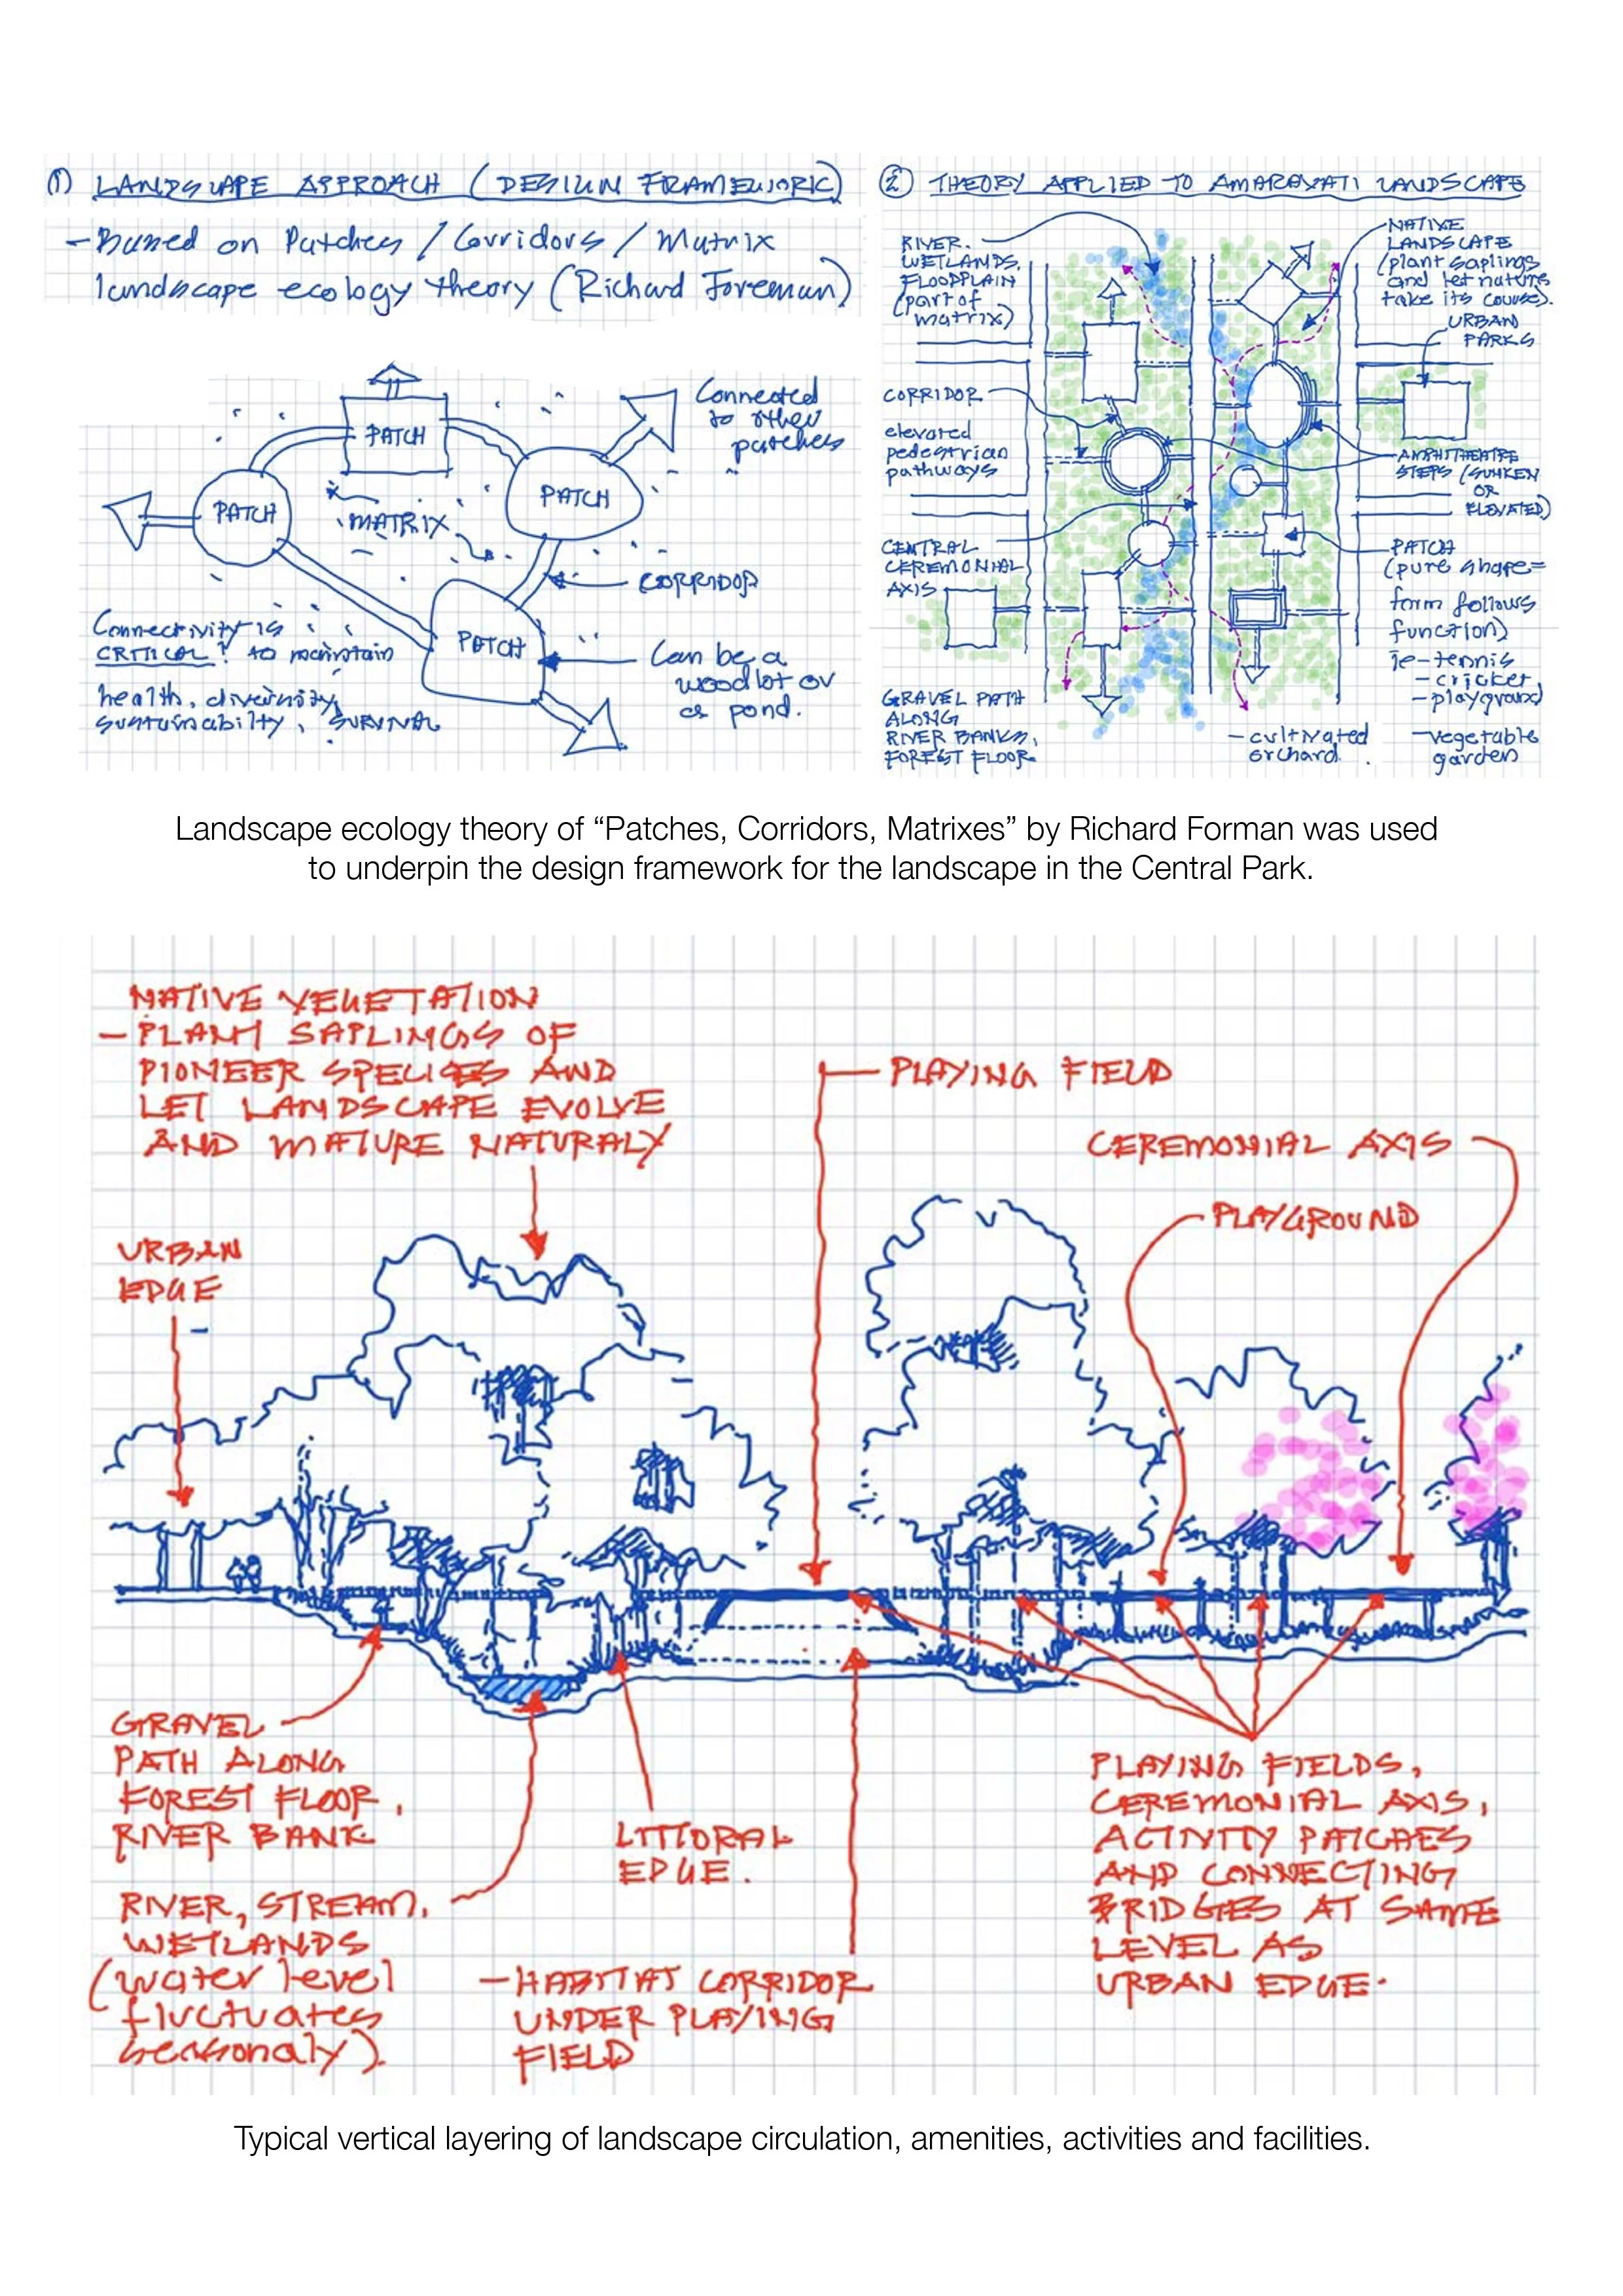 ① LANDSCAPE APPROACH (DESIGN FRAMEWORK)
- Based on Patches / Corridors / Matrix
landscape ecology theory (Richard Foreman)
PATCH
PATCH
PATCH
PATCH
MATRIX
Connected
to other
patches
CORRIDOR
Connectivity is
CRITICAL! to maintain
health, diversity,
sustainabilty, SURVIVAL
Can be a
woodlot or
a pond.
② THEORY APPLIED TO AMARAVATI LANDSCAPE
RIVER.
WETLANDS,
FLOODPLAIN
(part of
matrix)
CORRIDOR
elevated
pedestrian
pathways
CENTRAL
CEREMONIAL
AXIS
GRAVEL PATH
ALONG
RIVER BANKS,
FOREST FLOOR
NATIVE
LANDSCAPE
(plant saplings
and let nature
take its course).
URBAN
PARKS
AMPHITHEATRE
STEPS (SUNKEN
OR
ELEVATED)
PATCH
(pure shape=
form follows
function)
ie-tennis
-cricket
-playground
-cultivated
orchard.
-vegetable
garden
Landscape ecology theory of “Patches, Corridors, Matrixes” by Richard Forman was used
to underpin the design framework for the landscape in the Central Park.
NATIVE VEGETATION
- PLANT SAPLINGS OF
PIONEER SPECIES AND
LET LANDSCAPE EVOLVE
AND MATURE NATURALY
PLAYING FIELD
CEREMONIAL AXIS
PLAYGROUND
URBAN
EDGE
GRAVEL
PATH ALONG
FOREST FLOOR,
RIVER BANK
RIVER, STREAM,
WETLANDS
(water level
fluctuates
seasonaly).
LITTORAL
EDGE.
- HABITAT CORRIDOR
UNDER PLAYING
FIELD
PLAYING FIELDS,
CEREMONIAL AXIS,
ACTIVITY PATCHES
AND CONNECTING
BRIDGES AT SAME
LEVEL AS
URBAN EDGE.
Typical vertical layering of landscape circulation, amenities, activities and facilities.